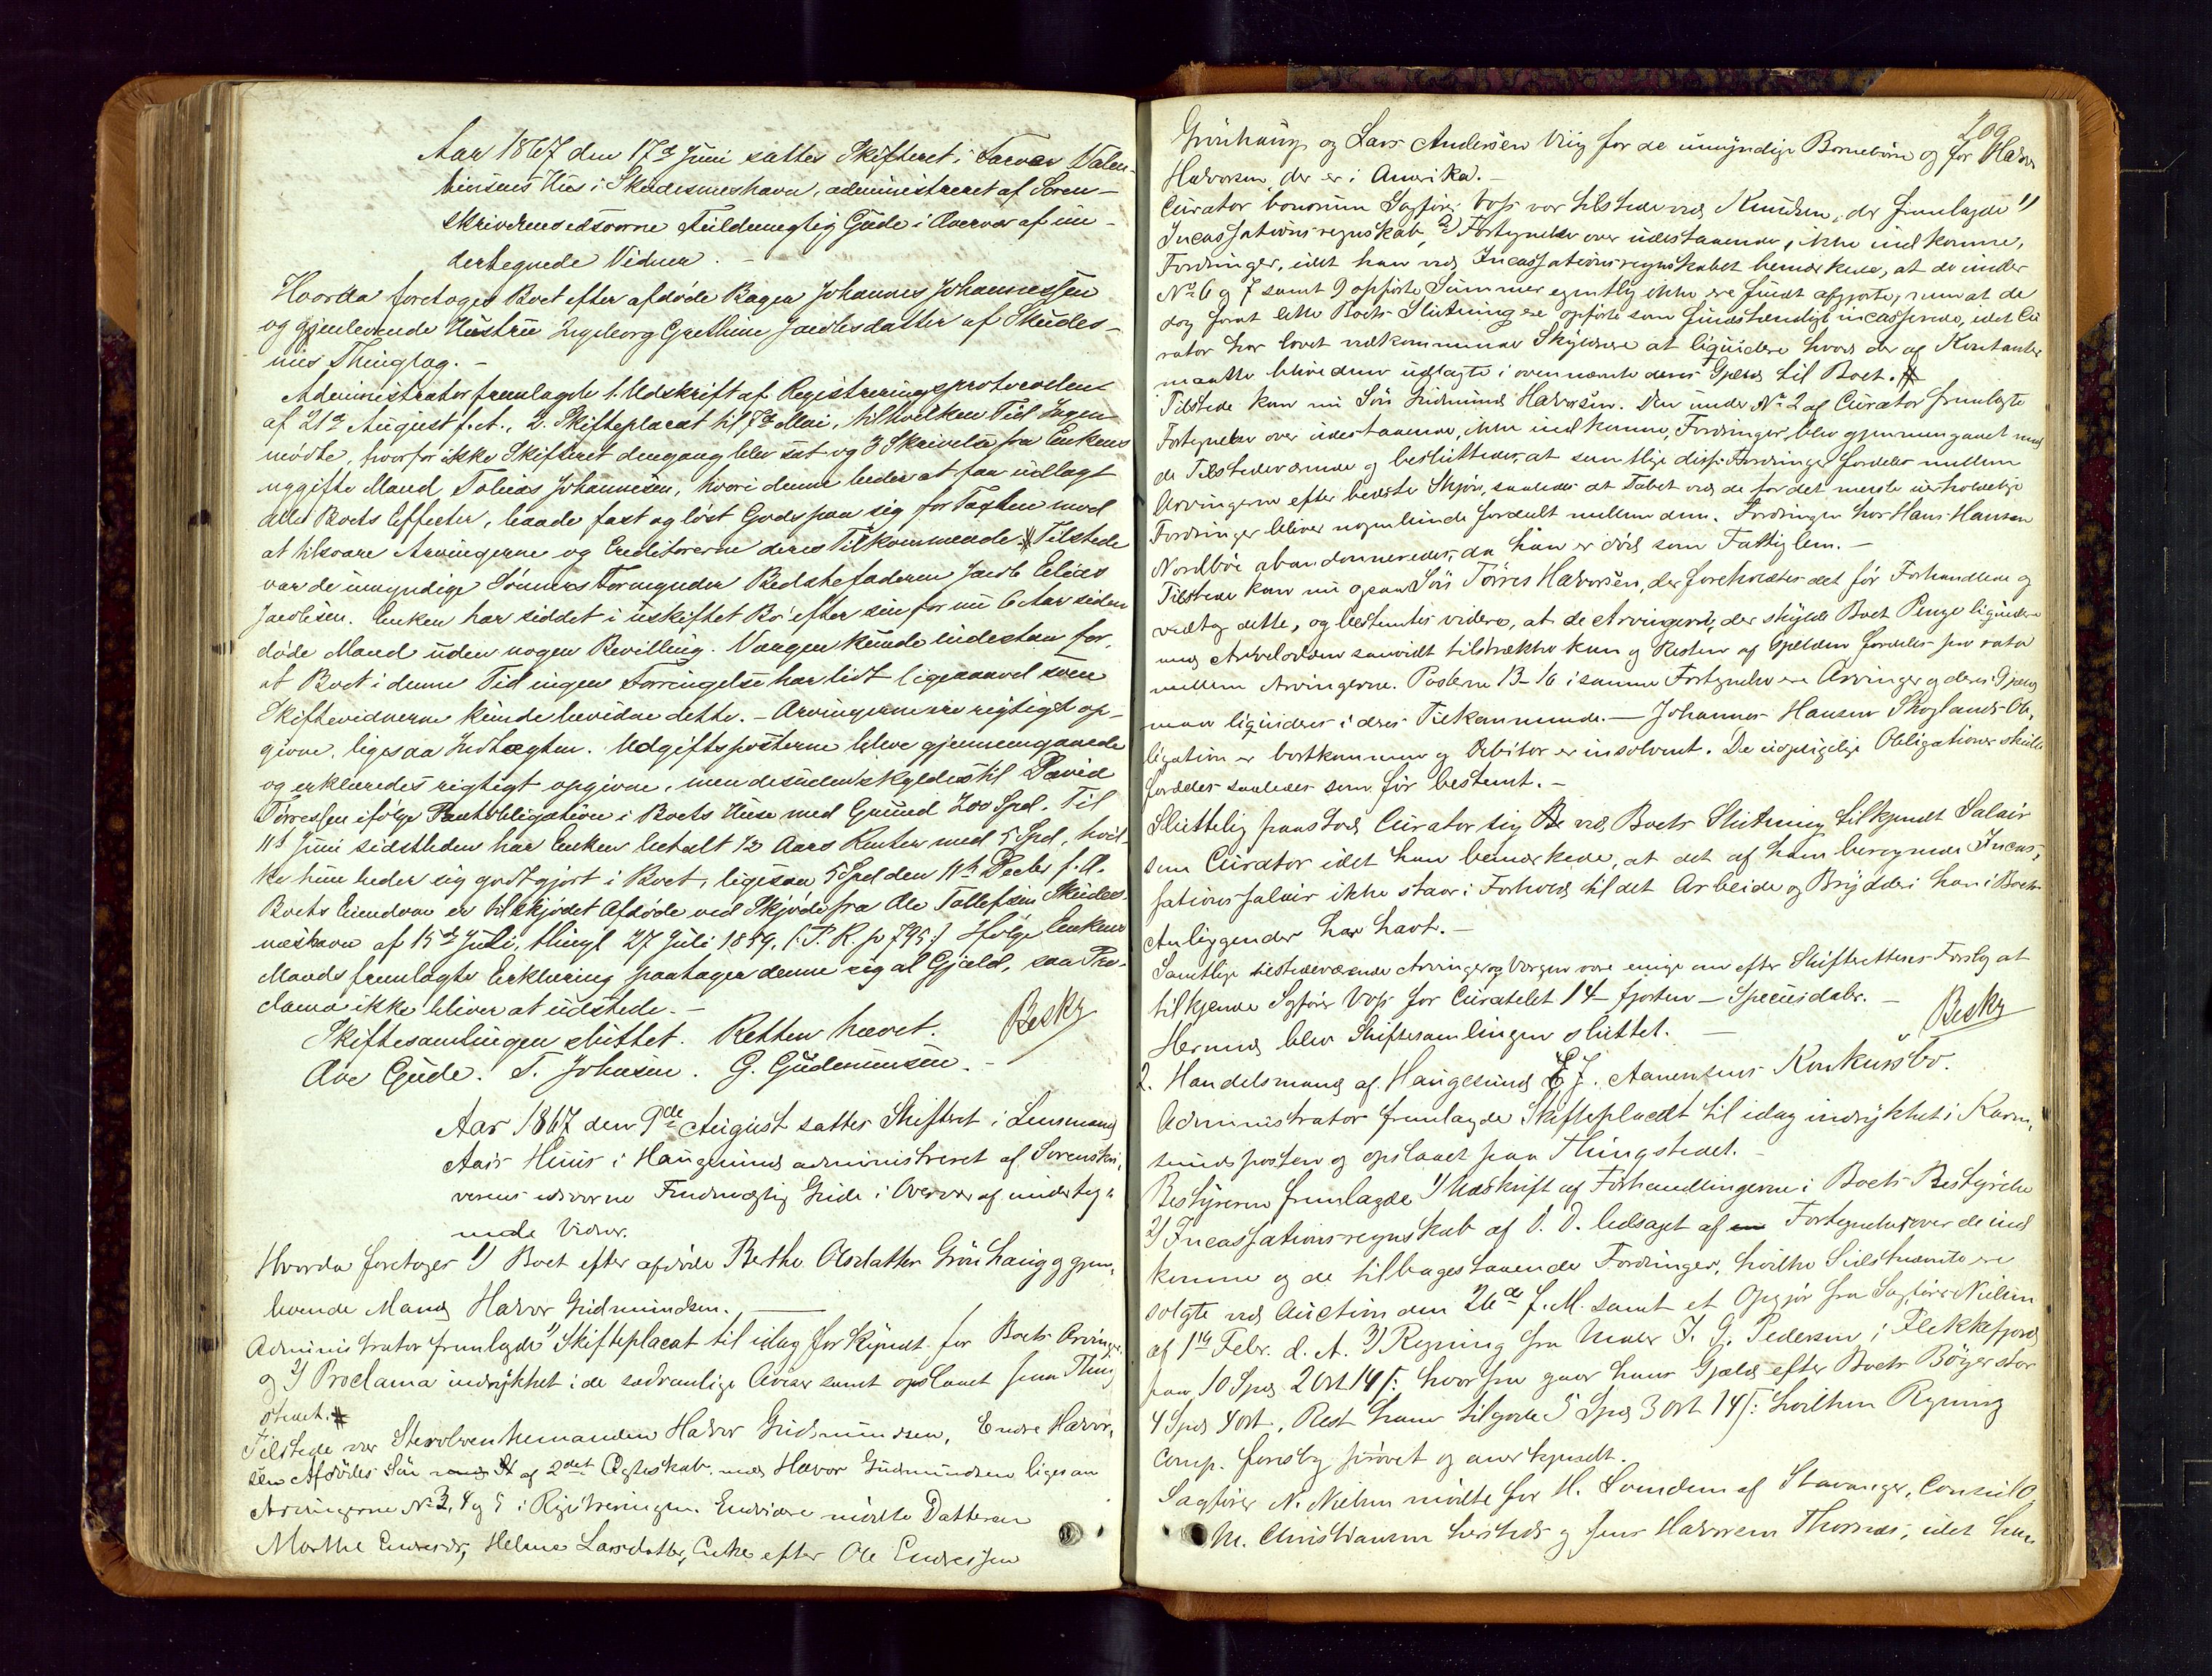 Aar 1867 den 17de Juni sattes Skifteret i Torvar Valen-
tinsens Hus i Skudesneshavn, administreret af Soren-
skriverens edsvorne Fuldmegtig Gude i Overvær af un-
dertegnede Vidner. -
Hvorda foretoges Boet efter afdøde Bager Johannes Johannessen
og gjenlevende Hustru Ingeborg Grethine Jacobsdatter af Skudes-
nes Thinglag. -
Administrator fremlagde 1. Udskrift af Registreringsprotocollen
af 21de August f. A., 2. Skifteplacat til 7de Mai, til hvilken Tid Ingen
mødte, hvorfor ikke Skifteret dengang blev sat og 3 Skrivelse fra Enkens
nygifte Mand Tobias Johannesen, hvori denne beder at faa udlagt
alle Boets Effecter, baade fast og løst Gods paa sig for Taxten mod
at tilsvare Arvingerne og Creditorerne deres Tilkommende. # Tilstede
var de umyndige Sønners Formynder Bedstefaderen Jacob Elias
Jacobsen. Enken har siddet i uskiftet Bo efter sin for nu 6 Aar siden
døde Mand uden nogen Bevilling. Værgen kunde indestaa for,
at Boet i denne Tid ingen Forringelse har lidt ligesaavel som
Skiftevidnerne kunde bevidne dette. - Arvingerne ere rigtigt op-
givne, ligesaa Indtægten. Udgiftsposterne bleve gjennemgaaede
og erklæredes rigtigt opgivne, men desuden skyldes til David
Tørressen ifølge Pantobligation i Boets Huse med Grund 200 Spd. Til
11te Juni sidstleden har Enken betalt 1/2 Aars Renter med 5 Spd, hvil-
ke hun beder sig godtgjort i Boet, ligesaa 5 Spd den 11te Decbr f. A.
Boets Eiendom er tilskjødet Afdøde ved Skjøde fra Ole Tollefsen Skudes-
neshavn af 15de Juli, thingl. 27 Juli 1859. (: P. R. p 795 :) Ifølge Enkens
Mands fremlagte Erklæring paatager denne sig al Gjæld, saa Pro-
clama ikke bliver at udstede. -
Skiftesamlingen sluttet. Retten hævet. Beskr
Ove Gude. T. Johnsen. G. Gudmunsen. -
Aar 1867 den 9de August sattes Skifteret i Lensmand
Aars Huus i Haugesund administreret af Sorenskri-
verens edsvorne Fuldmægtig Gude i Overvær af underteg-
nede Vidner.
Hvorda foretoges 1) Boet efter afdøde Berthe Olsdatter Grønhaug og gjen-
levende Mand Halvor Gudmundsen. -
Administrator fremlagde 1) Skifteplacat til idag forkyndt for Boets Arvinger
og 2) Proclama indrykket i de sædvanlige Aviser samt opslaaet paa Thing-
stedet. #
Tilstede var Stervboenkemanden Halvor Gudmundsen, Endre Halvor-
sen Afdødes Søn af 2det Ægteskab med Halvor Gudmundsen ligesaa
Arvingerne No 3, 4 og 5 i Registreringen. Endvidere mødte Datteren
Marthe Endresdr, Helene Larsdatter, Enke efter Ole Endresen
209
Grønhaug og Lars Andersen Viig for de umyndige Børnebørn og for Halvor
Halvorsen, der er i Amerika. -
Curator bonorum Sagfører Voss var tilstede ved Knudsen, der fremlagde 1)
Incassationsregnskab, 2) Fortegnelse over udestaaende, ikke indkomne,
Fordringer, idet han ved Incassationsregnskabet bemærkede, at de under
No 6 og 7 samt 9 opførte Summer egentlig ikke ere fuldt afgjorte, men at de
dog forat lette Boets Slutning ere opførte som fuldstændigt incasserede, idet Cu
rator har lovet vedkommende Skyldnere at liquidere hvad der af Kontanter
maatte blive dem udlagte i ovennævnte deres Gjæld til Boet. #
Tilstede kom nu Søn Gudmund Halvorsen. Den under No 2 af Curator fremlagte
Fortegnelse over udestaaende, ikke indkomne, Fordringer, blev gjennemgaaet med
de Tilstedeværende og besluttedes, at samtlige disse Fordringer fordeles mellem
Arvingerne efter bedste Skjøn, saaledes at Tabet ved de for det meste uerholdelige
Fordringer bliver nogenlunde fordeelt mellem dem. Fordringen hos Hans Hansen
Nordbøe abandonneredes, da han er død som Fattiglem. -
Tilstede kom nu ogsaa Søn Tørres Halvorsen, der foreholdtes det før Forhandlede og
vedtog dette, og bestemtes videre, at de Arvinger, der skylde Boet Penge liqvidere
med Arvelodden saavidt tilstrække kan og Resten af Gjælden fordeles pro rata
mellem Arvingerne. Posterne 13-16 i samme Fortegnelse ere Arvinger og deres Gjæld
maa liqvideres i deres Tilkommende. - Johannes Hansen Skoglands Ob-
ligation er bortkommen og Debitor er insolvent. De usigelige Obligationer skulle
fordeles saaledes som før bestemt. -
Sluttelig paastod Curator sig ved Boets Slutning tilkjendt Salair
som Curator idet han bemærkede, at det af ham beregnede Incas-
sationssalair ikke staar i Forhold til det Arbeide og Bryderi han i Boets
Anliggender har havt. -
Samtlige tilstedeværende Arvinger og Værger vare enige om efter Skifterettens Forslag at
tilkjende Sagfører Voss for Curatelet 14 - fjorten - Speciesdaler. -
Hermed blev Skiftesamlingen sluttet. - Beskr
2. Handelsmand af Haugesund E J. Aanensens Konkursbo.
Administrator fremlagde Skifteplacat til idag indrykket i Karm-
sundsposten og opslaaet paa Thingstedet. -
Bestyreren fremlagde 1) Udskrift af Forhandlingerne i Boets Bestyrelse
2) Incassationsregnskab af D. D. ledsaget af Fortegnelse over de ind
komne og de tilbagestaaende Fordringer, hvilke Sidstnævnte ere
solgte ved Auction den 26de f. M. samt et Opgjør fra Sagfører Nielsen
af 1ste Febr. d. A. 3) Regning fra J. G. Pedersen i Flekkefjord
paa 10 Spd 2 Ort 14 s: hvorfra gaar hans Gjæld efter Boets Bøger stor
4 Spd 4 ort, Rest ham tilgode 5 Spd 3 ort 14 s: hvilken Regning
Comp. foresby prøvet og anerkjendt.
Sagfører N. Nielsen mødte for H. Svendsen af Stavanger, Consul O.
M. Christiansen og Jens Halvorsen Thornæs, idet han